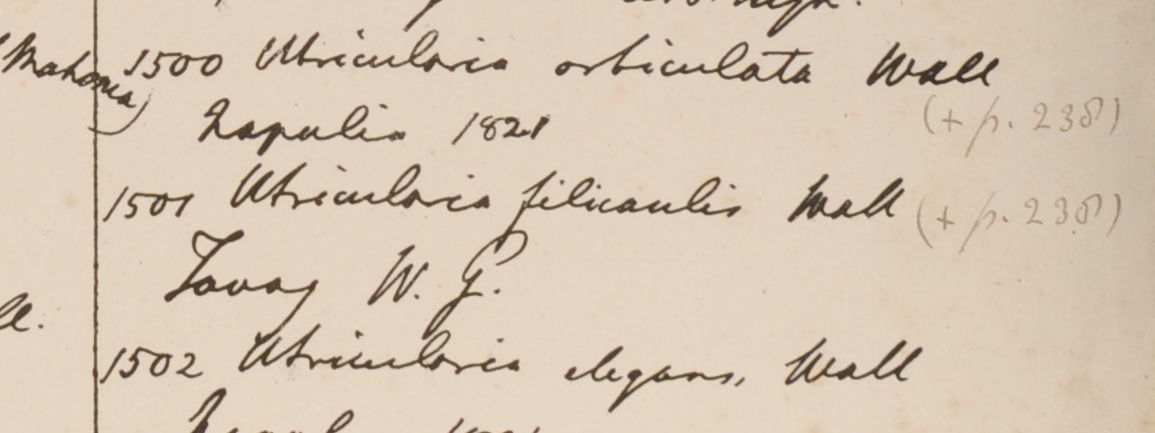 (Mahonia)
1500 Utricularia orbiculata Wall
(+ p. 238)
Napalia 1821
1501 Utricularia filicaulis Wall (+ p. 238)
Tavoy W. G.
ll.
1502 Utricularia elegans, Wall